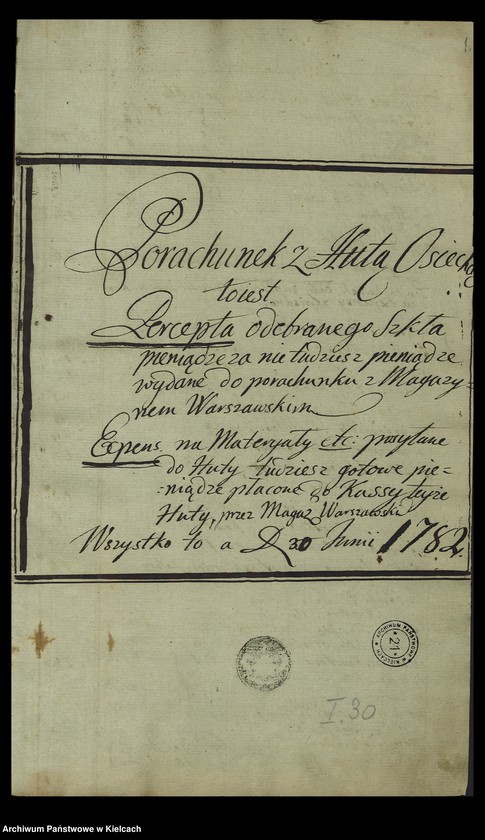 1.
Porachunek z Hutą Osiecką
toiest
Percepta odebranego Szkła
pieniądze za nie tudziesz pieniądze
wydane do porachunku z Magazy-
nem Warszawskim
Expens na Materyały etc: posyłane
do Huty tudziesz gotowe pie=
=niądze płacone do Kassy teyże
Huty, przez Magaz Warszawski
Wszystko to a D 30 Junii 1782.
ARCHIWUM PAŃSTWOWE W KIELCACH
21
I.30
Archiwum Państwowe w Kielcach